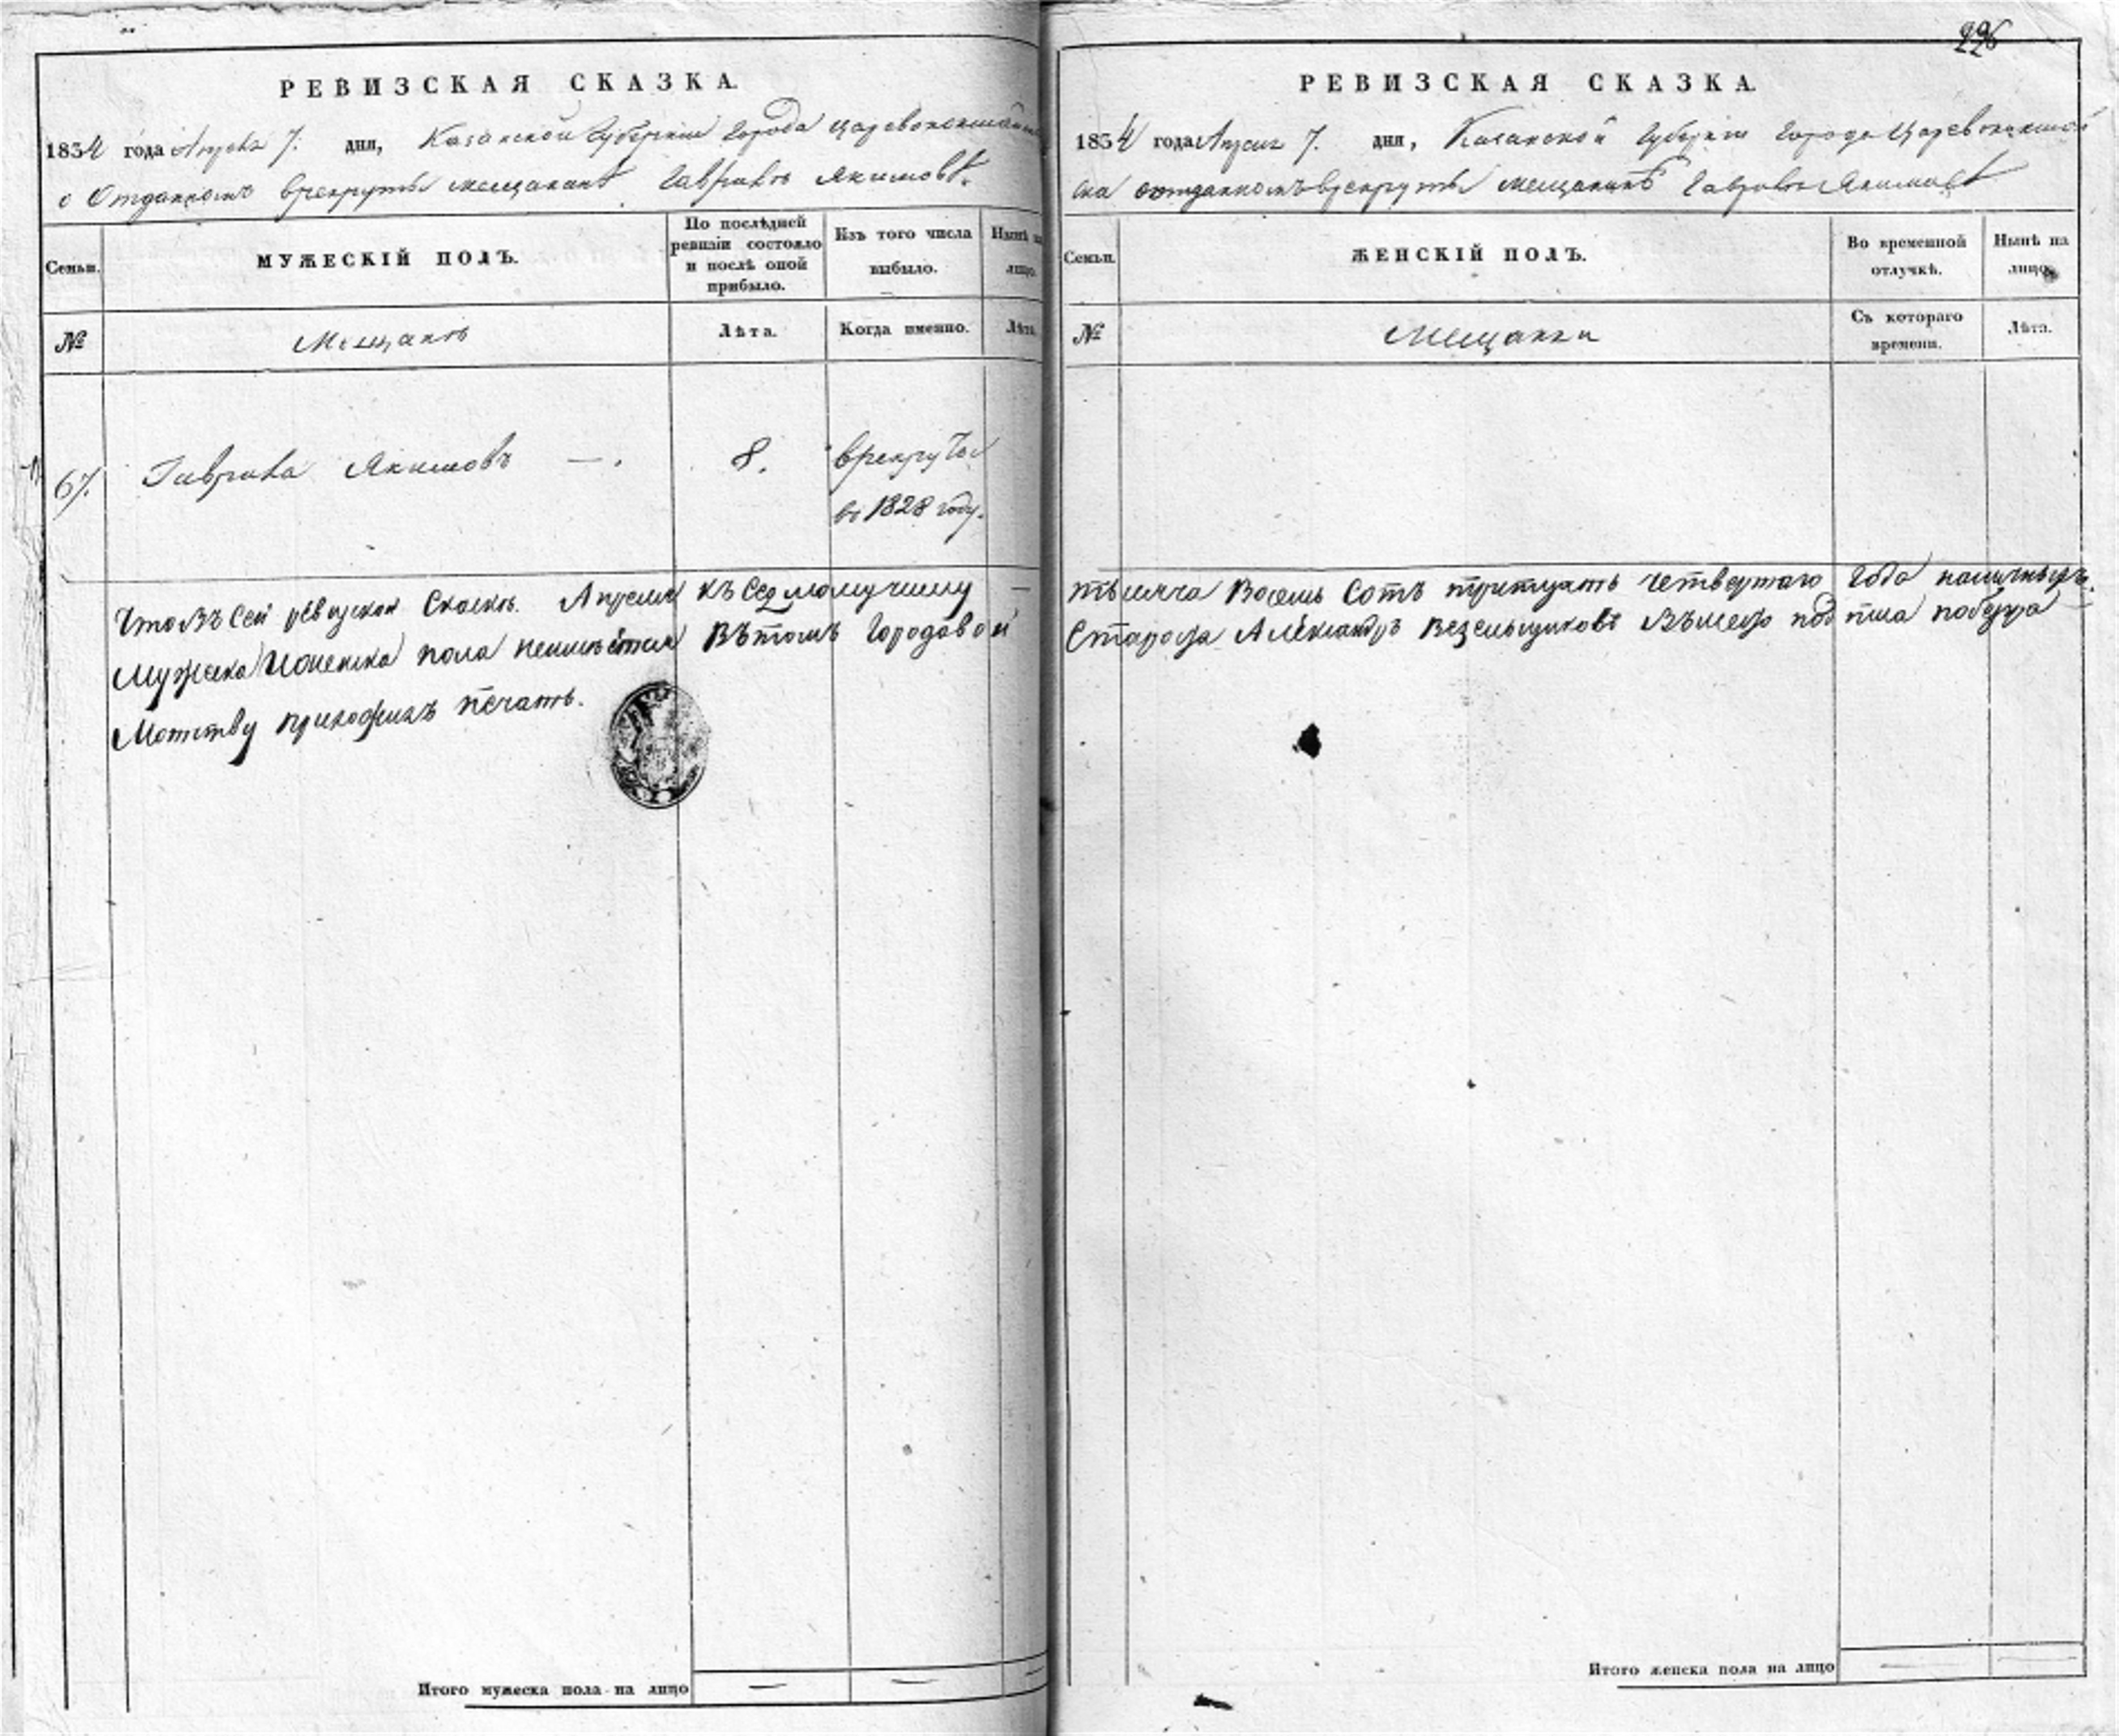 РЕВИЗСКАЯ СКАЗКА.
1834 года Апреля 7. дня, Казанской Губернии Города Царевококшайска
о Отданномъ врекруты мещанинѣ Гаврилѣ Якимовѣ.
Семьи.
МУЖЕСКІЙ ПОЛЪ.
По послѣдней
ревизіи состояло
и послѣ оной
прибыло.
Изъ того числа
выбыло.
Нынѣ на
лицо.
№
Мещанъ
Лѣта.
Когда именно.
Лѣта.
67.
Гаврила Якимовъ —.
8.
врекруты
въ 1828 году.
Что въ сей ревизской Скаскѣ. Апреля къ Седмому числу —
Мужска Иженска пола неимѣется Вѣтомъ Городовой
приложилъ печать.
Итого мужеска пола на лицо — —
226
РЕВИЗСКАЯ СКАЗКА.
1834 года Апреля 7. дня, Казанской Губерніи Города Царевококшай
ска оотданномъ врекруты мещанинѣ Гаврилѣ Якимовѣ
Семьи.
ЖЕНСКІЙ ПОЛЪ.
Во временной
отлучкѣ.
Нынѣ на
лицо.
№
Мещанки
Съ котораго
времени.
Лѣта.
тысяча Восемь Сотъ тритцать четвертаго Года наличныхъ
Староста Александръ
Итого женска пола на лицо — —